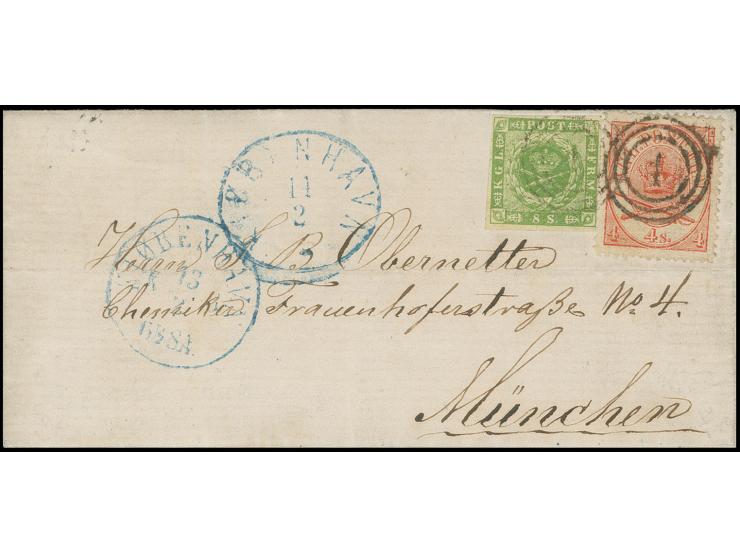 KGL POST FRIM
8 S.
4 4S. 4
1
KIØBENHAVN
11
2
KIØBENHAVN
13
Herrn J. B. Obernetter
Chemiker Frauenhoferstraße No 4.
München